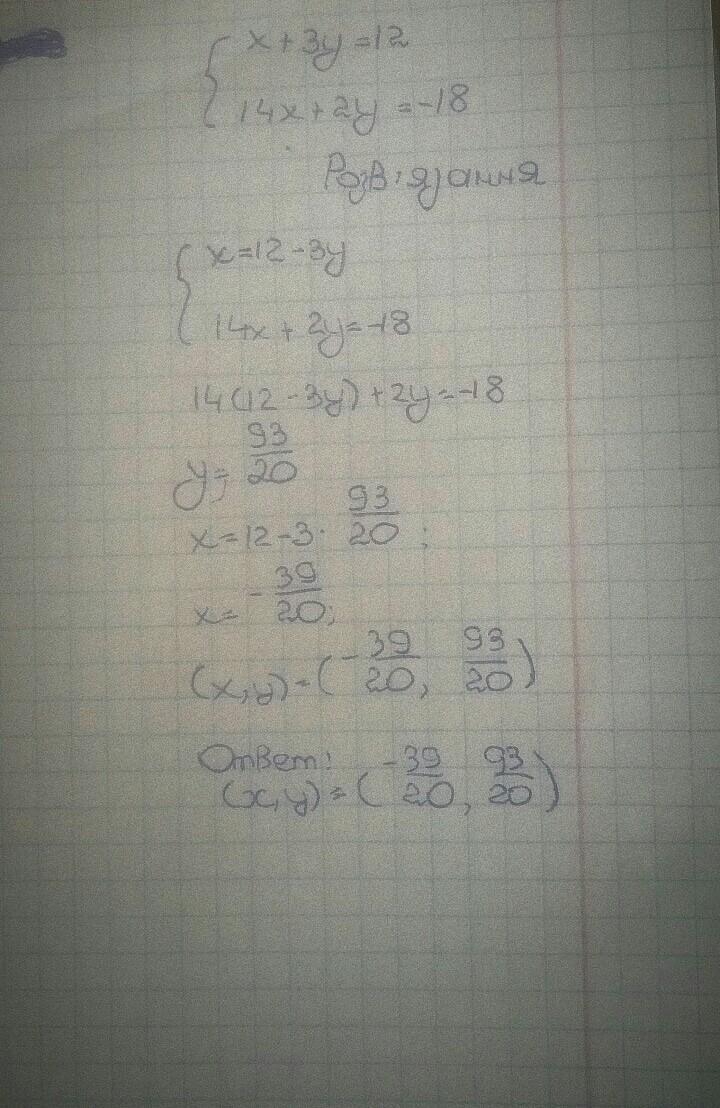 x + 3y = 12
14x + 2y = -18
Розв'язання
x = 12 - 3y
14x + 2y = -18
14(12 - 3y) + 2y = -18
y = 93/20
x = 12 - 3 · 93/20 ;
x = - 39/20;
(x,y) = (- 39/20, 93/20)
Ответ:
(x,y) = (-39/20, 93/20)